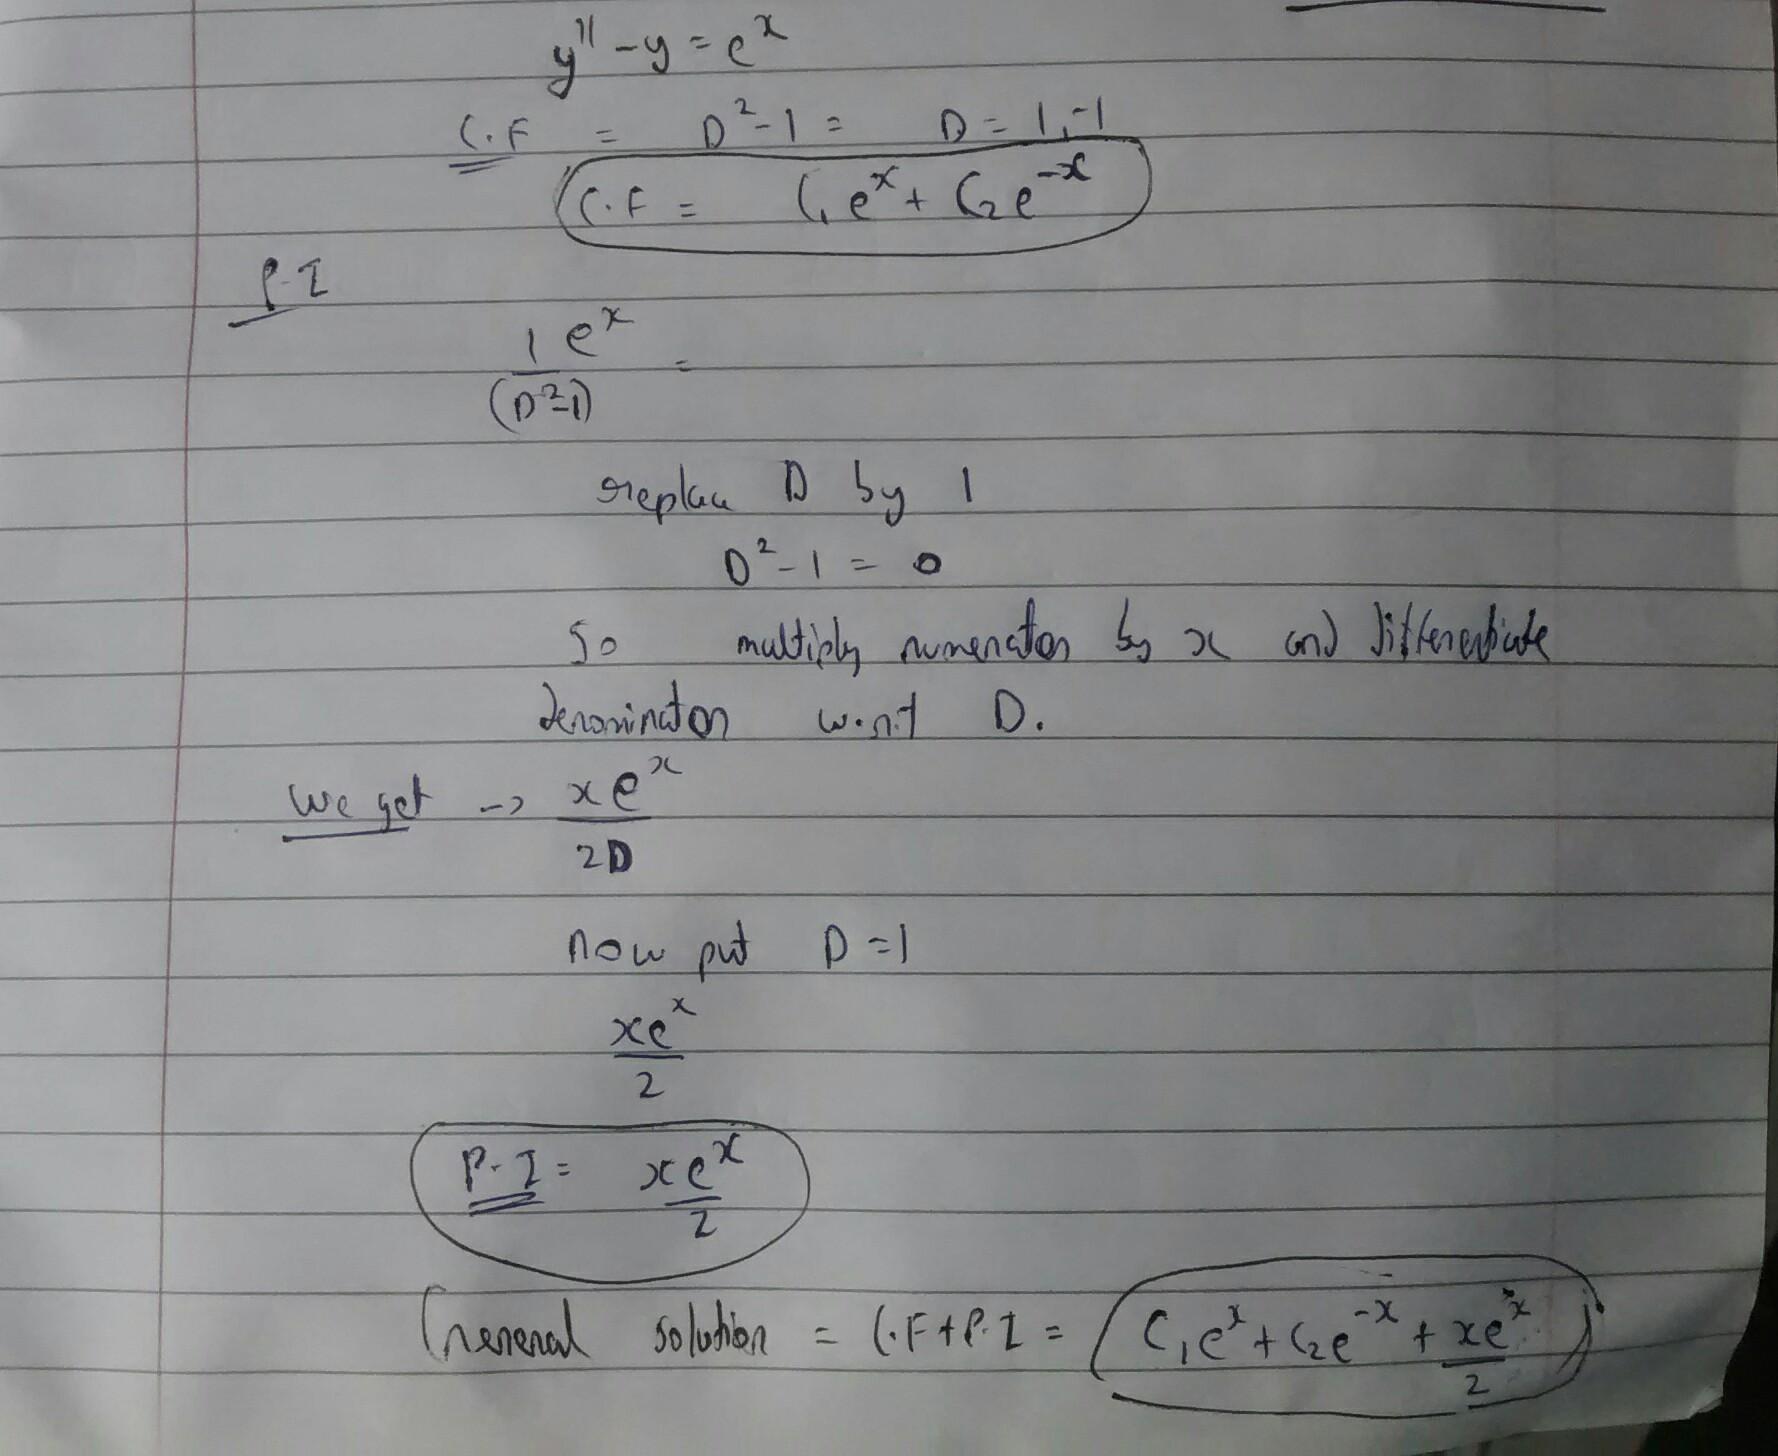 y'' - y = e^x
C.F = D^2 - 1 = D = 1, -1
C.F = C₁e^x + C₂e^-x
P.I
1 e^x / (D^2-1) =
replace D by 1
D^2 - 1 = 0
So multiply numerator by x and differentiate
denominator w.r.t D.
We get -> xe^x / 2D
now put D = 1
xe^x / 2
P.I = xe^x / 2
General solution = C.F + P.I = C₁e^x + C₂e^-x + xe^x / 2